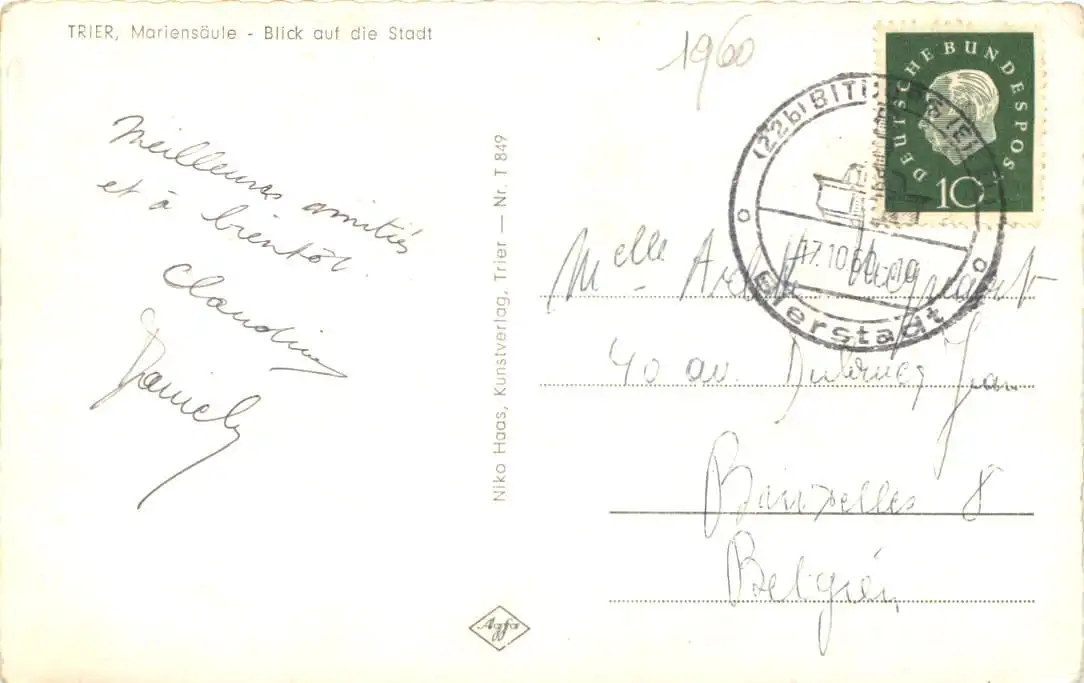 TRIER, Mariensäule - Blick auf die Stadt
1960
Meilleures amitiés
et à bientôt.
Claudine
Daniel
Niko Haas, Kunstverlag, Trier — Nr. T 849
Agfa
DEUTSCHE BUNDESPOST
10
(22b) BITBURG (EIFEL)
17.10.60.-19
Bierstadt
Melle
40 av. Jean
Bruxelles 8
Belgien